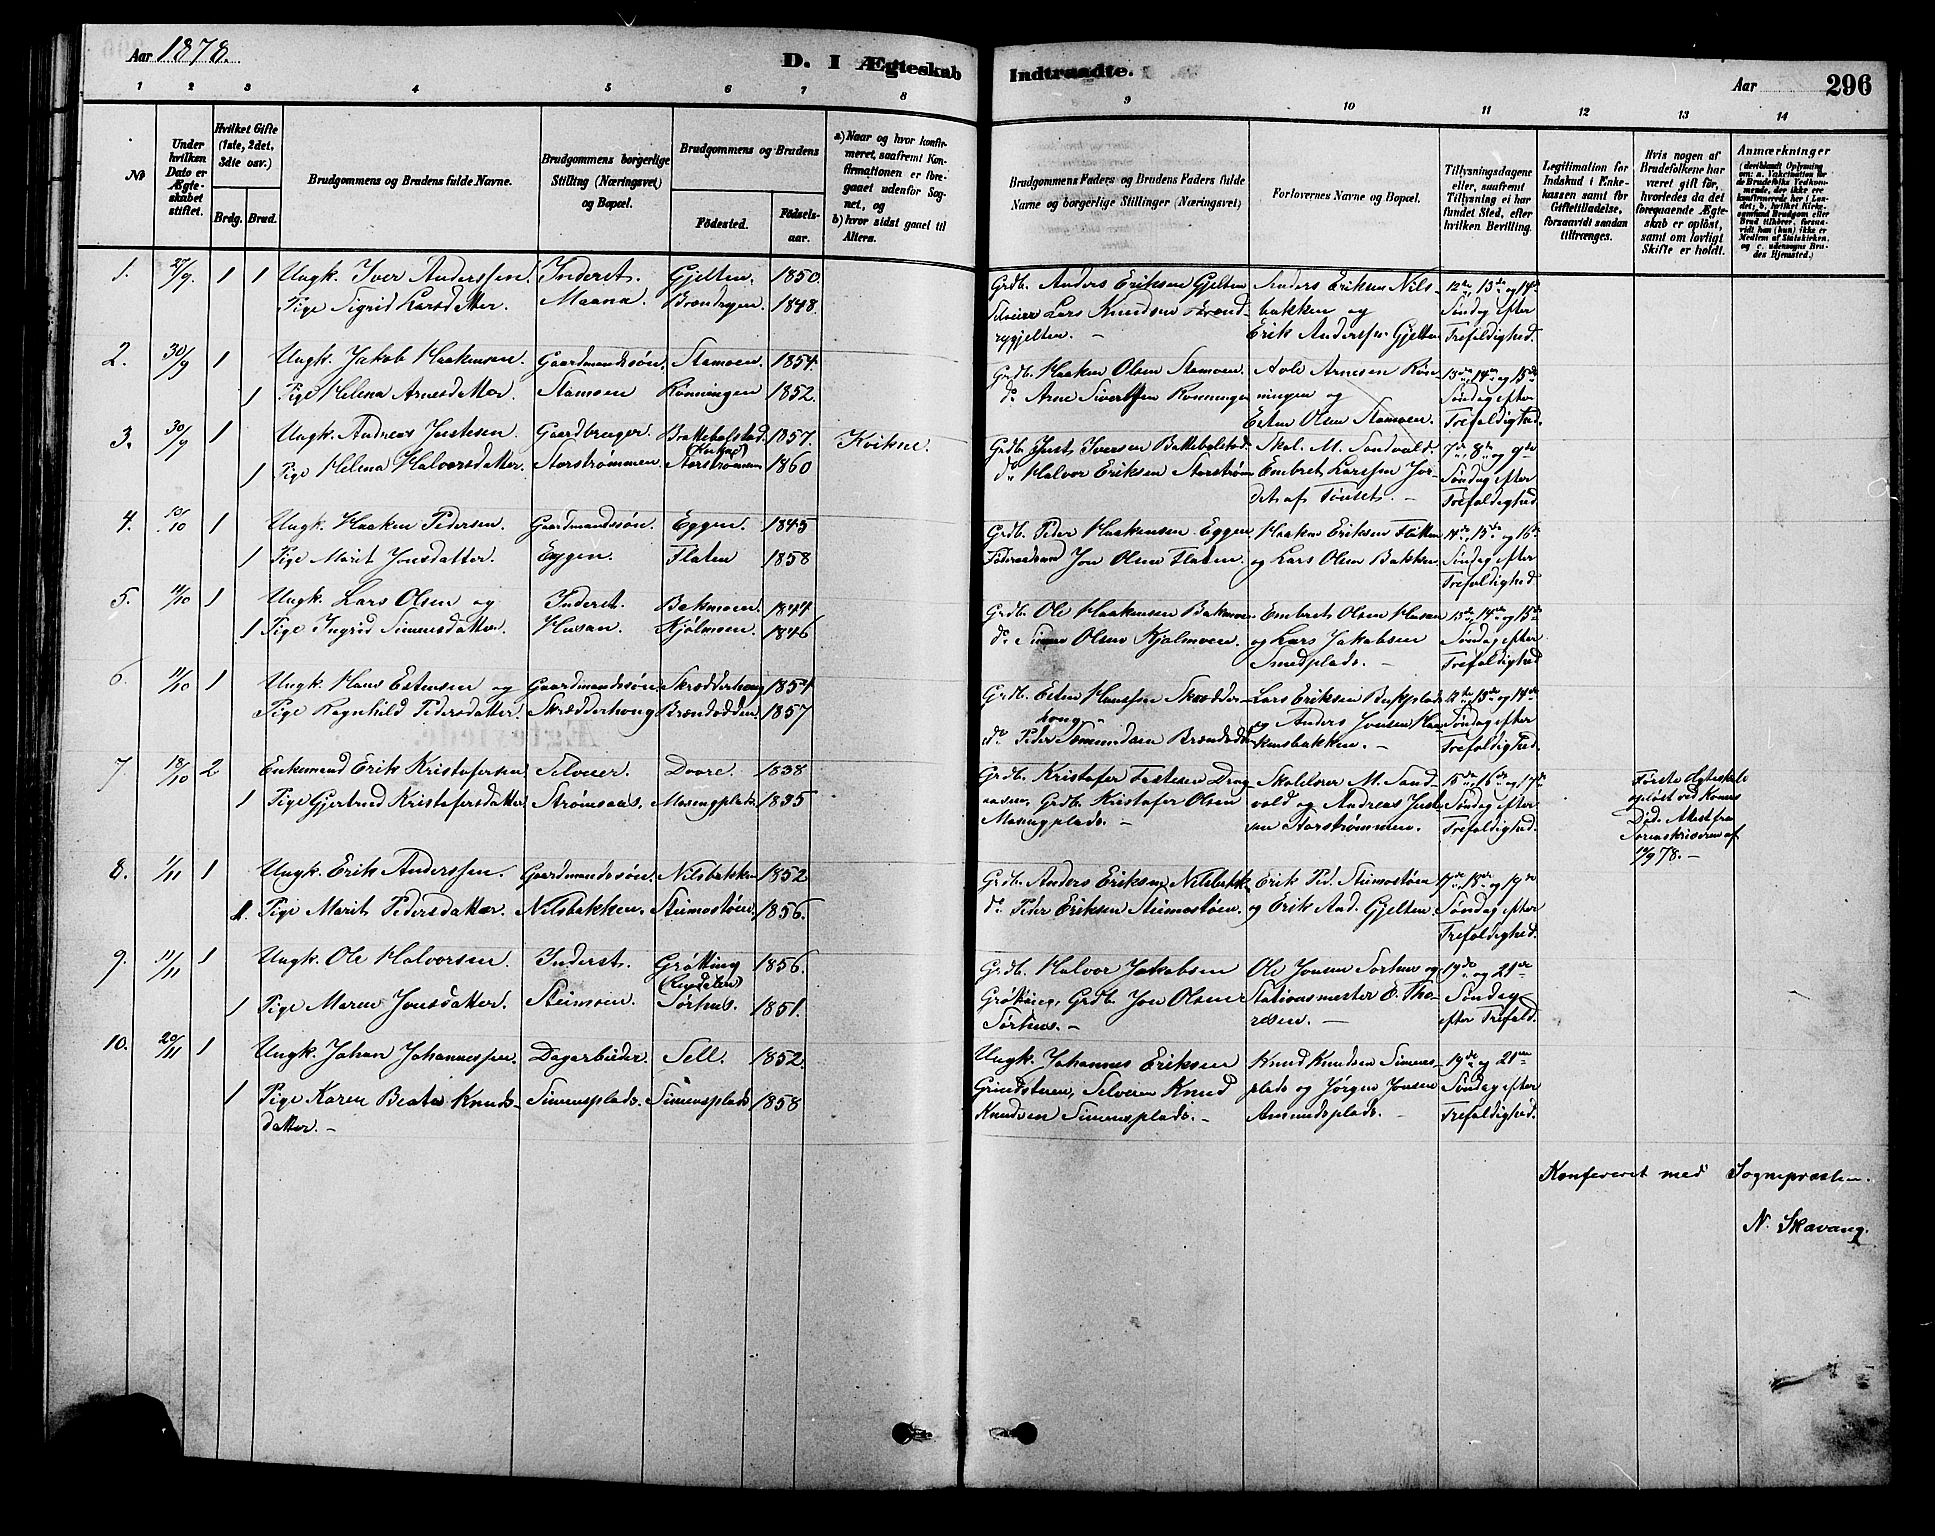 Aar 1878.
D. I Ægteskab Indtraadte.
Aar 296
1 2 3 4 5 6 7 8 9 10 11 12 13 14
No
Under hvilken Dato er Ægteskabet stiftet.
Hvilket Gifte (1ste, 2det, 3die osv.)
Brdg. Brud.
Brudgommens og Brudens fulde Navne.
Brudgommens borgerlige Stilling (Næringsvei) og Bopæl.
Brudgommens og Brudens
Fødested.
Fødselsaar.
a) Naar og hvor konfirmeret, saafremt Konfirmationen er foregaaet udenfor Sognet, og
b) hvor sidst gaaet til Alters.
Brudgommens Faders og Brudens Faders fulde Navne og borgerlige Stillinger (Næringsvei)
Forlovernes Navne og Bopæl.
Tillysningsdagene eller, saafremt Tillysning ei har fundet Sted, efter hvilken Bevilling.
Legitimation for Indskud i Enkekassen samt for Giftetilladelse, forsaavidt saadan tiltrænges.
Hvis nogen af Brudefolkene har været gift før, hvorledes da det foregaaende Ægteskab er opløst, samt om lovligt Skifte er holdt.
Anmærkninger
1. 27/9 1 1 Ungk. Iver Anderssen. Inderst. Gjelten. 1850. Grdb. Anders Eriksen Gjelten Anders Eriksen Nils- 12te, 13de og 14de
Pige Sigrid Larsdatter. Maana. Brændrygen 1848. Selveier Lars Knudsen Brænd- bakken og Søndag efter
rygjelten. — Erik Anderssen Gjelten Trefoldighed.
2. 30/9 1 Ungk. Jakob Haakensen. Gaardmandssøn. Stamoen. 1854. Grdb. Haaken Olsen Stamoen. Arnesen Røn- 13de, 14de og 15de
1 Pige Helena Arnesdatter. Stamoen Rønningen 1852. do Arne Sivertsen Rønningen ningen og Søndag efter
Esten Olsen Stamoen. Trefoldighed.
3. 30/9 1 Ungk. Andreas Justesen. Gaardbruger. Bakkebolstad. 1857. Kvikne. Grdb. Just Iversen Bakkebolstad Skol. M. Sandvold. 7de, 8de og 9de
1 Pige Helena Halvorsdatter. Storstrømmen. Storstrømmen 1860 do Halvor Eriksen Storstrøm Embret Larssen Jor- Søndag efter
det af Tønset. — Trefoldighed.
4. 10 1 Ungk. Haaken Pedersen. Gaardmandssøn. Eggen. 1845 Grdb. Peder Haakensen Eggen Haaken Eriksen Flaten 14de, 15de og 16de
1 Pige Marit Jonsdatter. Eggen. Flaten 1858 Føderaadsm. Jon Olsen Flaten. og Lars Olsen Bakken. Søndag efter
Trefoldighed.
5. 11/10 1 Ungk. Lars Olsen og Inderst. Bakmoen. 1844 Grdb. Ole Haakensen Bakmoen. Embret Olsen Husan 13de, 14de og 15de
1 Pige Ingrid Simensdatter. Husan. Kjølmoen. 1846 do Simen Olsen Kjølmoen og Lars Jakobsen Søndag efter
Smedplads. — Trefoldighed
6. 11/10 1 Ungk. Hans Estensen og Gaardmandssøn. Skrædderhaug 1854 Grdb. Esten Hanssen Skrædder- Lars Eriksen Bekplads 12te, 13de og 14de
Pige Ragnhild Pedersdatter. Skrædderhaug Brændodden. 1857 haug og Anders Jonsen Haa- Søndag efter
do Peder Amundsen Brændodden kensbakken. — Trefoldighed.
7 18/10 2 Enkemand Erik Kristofersen Selveier. Dovre. 1838 Grdb. Kristofer Skolelærer M. Sand- 15de, 16de og 17de Første Ægteskab
1 Pige Gjertrud Kristofersdatter. Strømsaas. Masingplads. 1835 Grdb. Kristofer Olsen vold og Andreas Just- Søndag efter opløst ved Konens
Masingplads. — sen Storstrømmen. Trefoldighed. Død. Attest fra
Sorenskriveren af
78. —
8. 1/11 1 Ungk. Erik Anderssen. Gaardmandssøn. Nilsbakken 1852 Grdb. Anders Eriksen Nilsbakk. Erik Ped. Steimostøen 17de, 18de og 19de
1. Pige Marit Pedersdatter. Nilsbakken. Steimostøen. 1856. do Peder Eriksen Steimostøen. og Erik And. Gjelten. Søndag efter
Trefoldighed.
9. 11/11 1 Ungk. Ole Halvorsen. Inderst. Grøtting 1856. Grdb. Halvor Jakobsen Ole Jonsen Sørhus og 19de og 21de
(Rendalen)
1 Pige Maren Jonsdatter. Steimoen. Sørhus. 1851. Grøtting, Grdb. Jon Olsen Stationsmester E. Tho- Søndag
Sørhus. — resen. — efter Trefold.
10. 20/11 1 Ungk. Johan Johannessen. Dagarbeider. Sell. 1852. Ungk. Johannes Eriksen Knud Knudsen Simens- 19de og 21de
1 Pige Karen Beate Knuds- Simensplads. Simensplads 1858 Grindstuen, Selveier Knud plads og Jørgen Jonsen Søndag efter
datter. — Knudsen Simensplads. — Amundsplads. — Trefoldighed.
Konfereret med Sognepræsten.
N. Skavang.